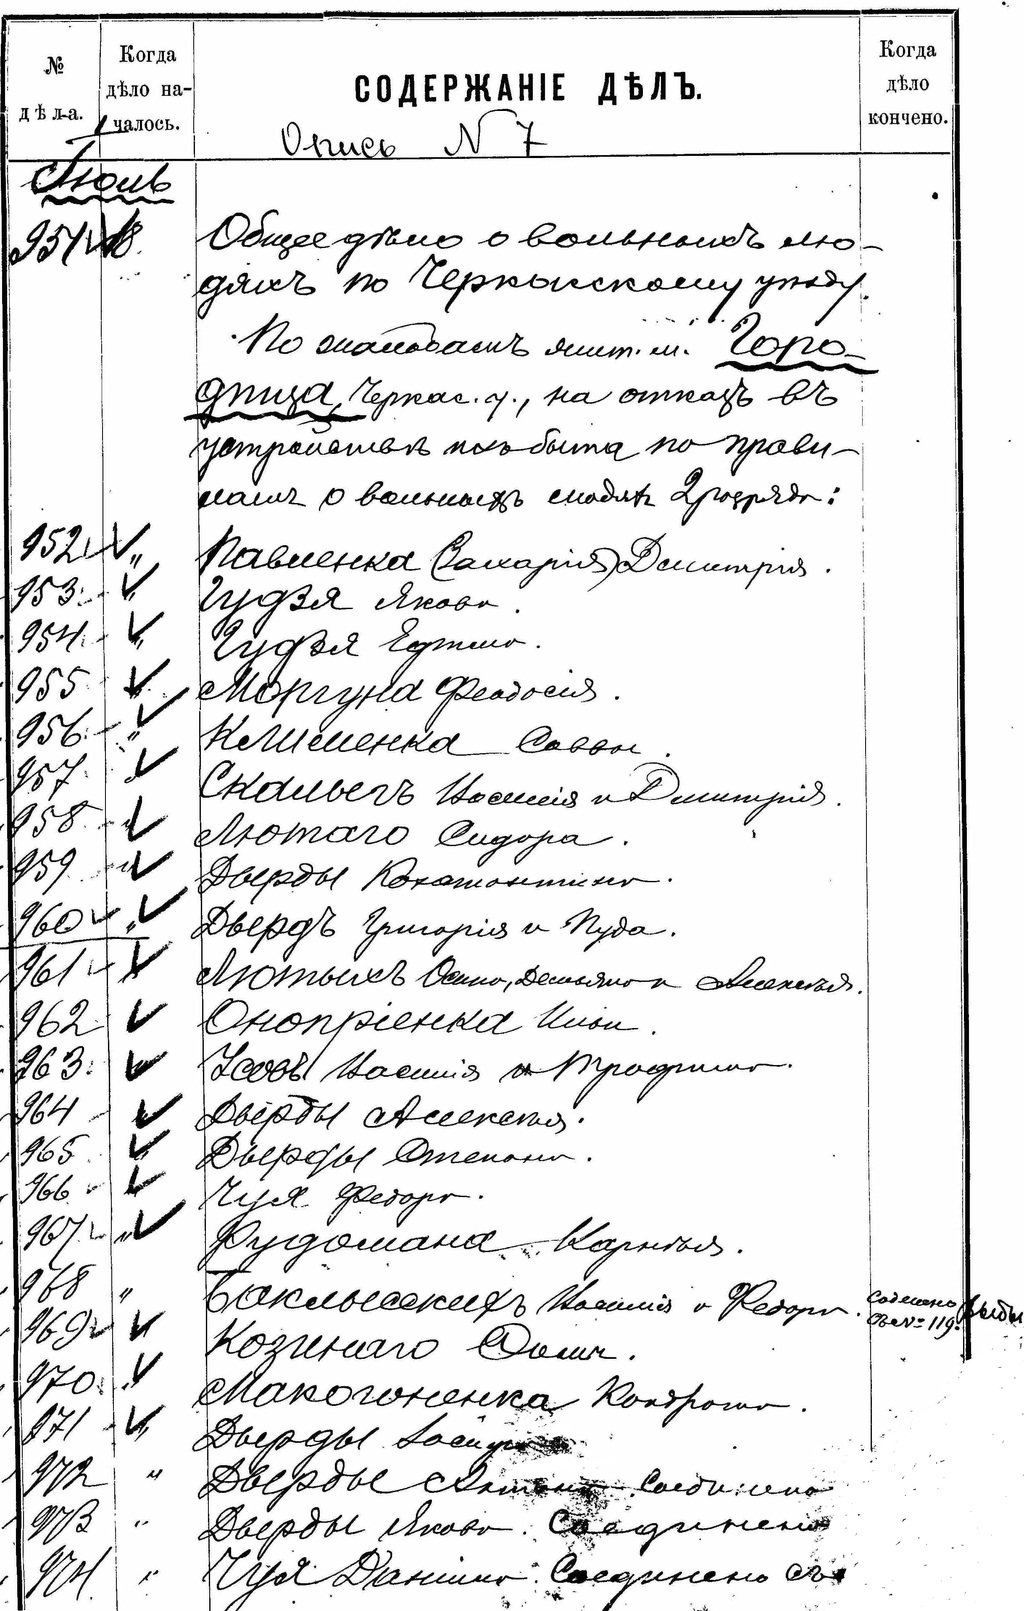 № дѣла.
Когда дѣло началось.
СОДЕРЖАНІЕ ДѢЛЪ.
Когда дѣло кончено.
Опись N 7
Іюль
951 18. Общее дѣло о вольныхъ лю-
дяхъ по Черкасскому уѣзду.
По жалобамъ жит. м. Горо-
дища, Черкас. у., на отказъ въ
устройствѣ ихъ быта по прави-
ламъ о вольныхъ людяхъ 2 разряда:
952 " Павленка (Захарія) Дмитрія.
953 " Гудзя Якова.
954 " Гудзя Ефима.
955 " Моргуна Феодосія.
956 " Клименка Саввы.
957 " Скалыгъ Василія и Дмитрія.
958 " Лютаго Сидора.
959 " Дверды Константина.
960 " Двердъ Григорія и Иуда.
961 " Лютыхъ Осипа, Демьяна и Алексѣя.
962 Онопріенка Ильи.
963 " Усовъ Василія и Трофима.
964 Дверды Алексѣя.
965 " Дверды Степана.
966 " Чуя Федора.
967 " Рудомана Карпа.
968 " Баклыскихъ Василія и Федора. Соединено
съ № 119.
969 " Козинаго Фомы.
970 " Макогоненка Кондрата.
971 " Дверды
972 " Дверды Соединено
973 " Дверды Якова. Соединено
974 " Чуя Данила. Соединено съ